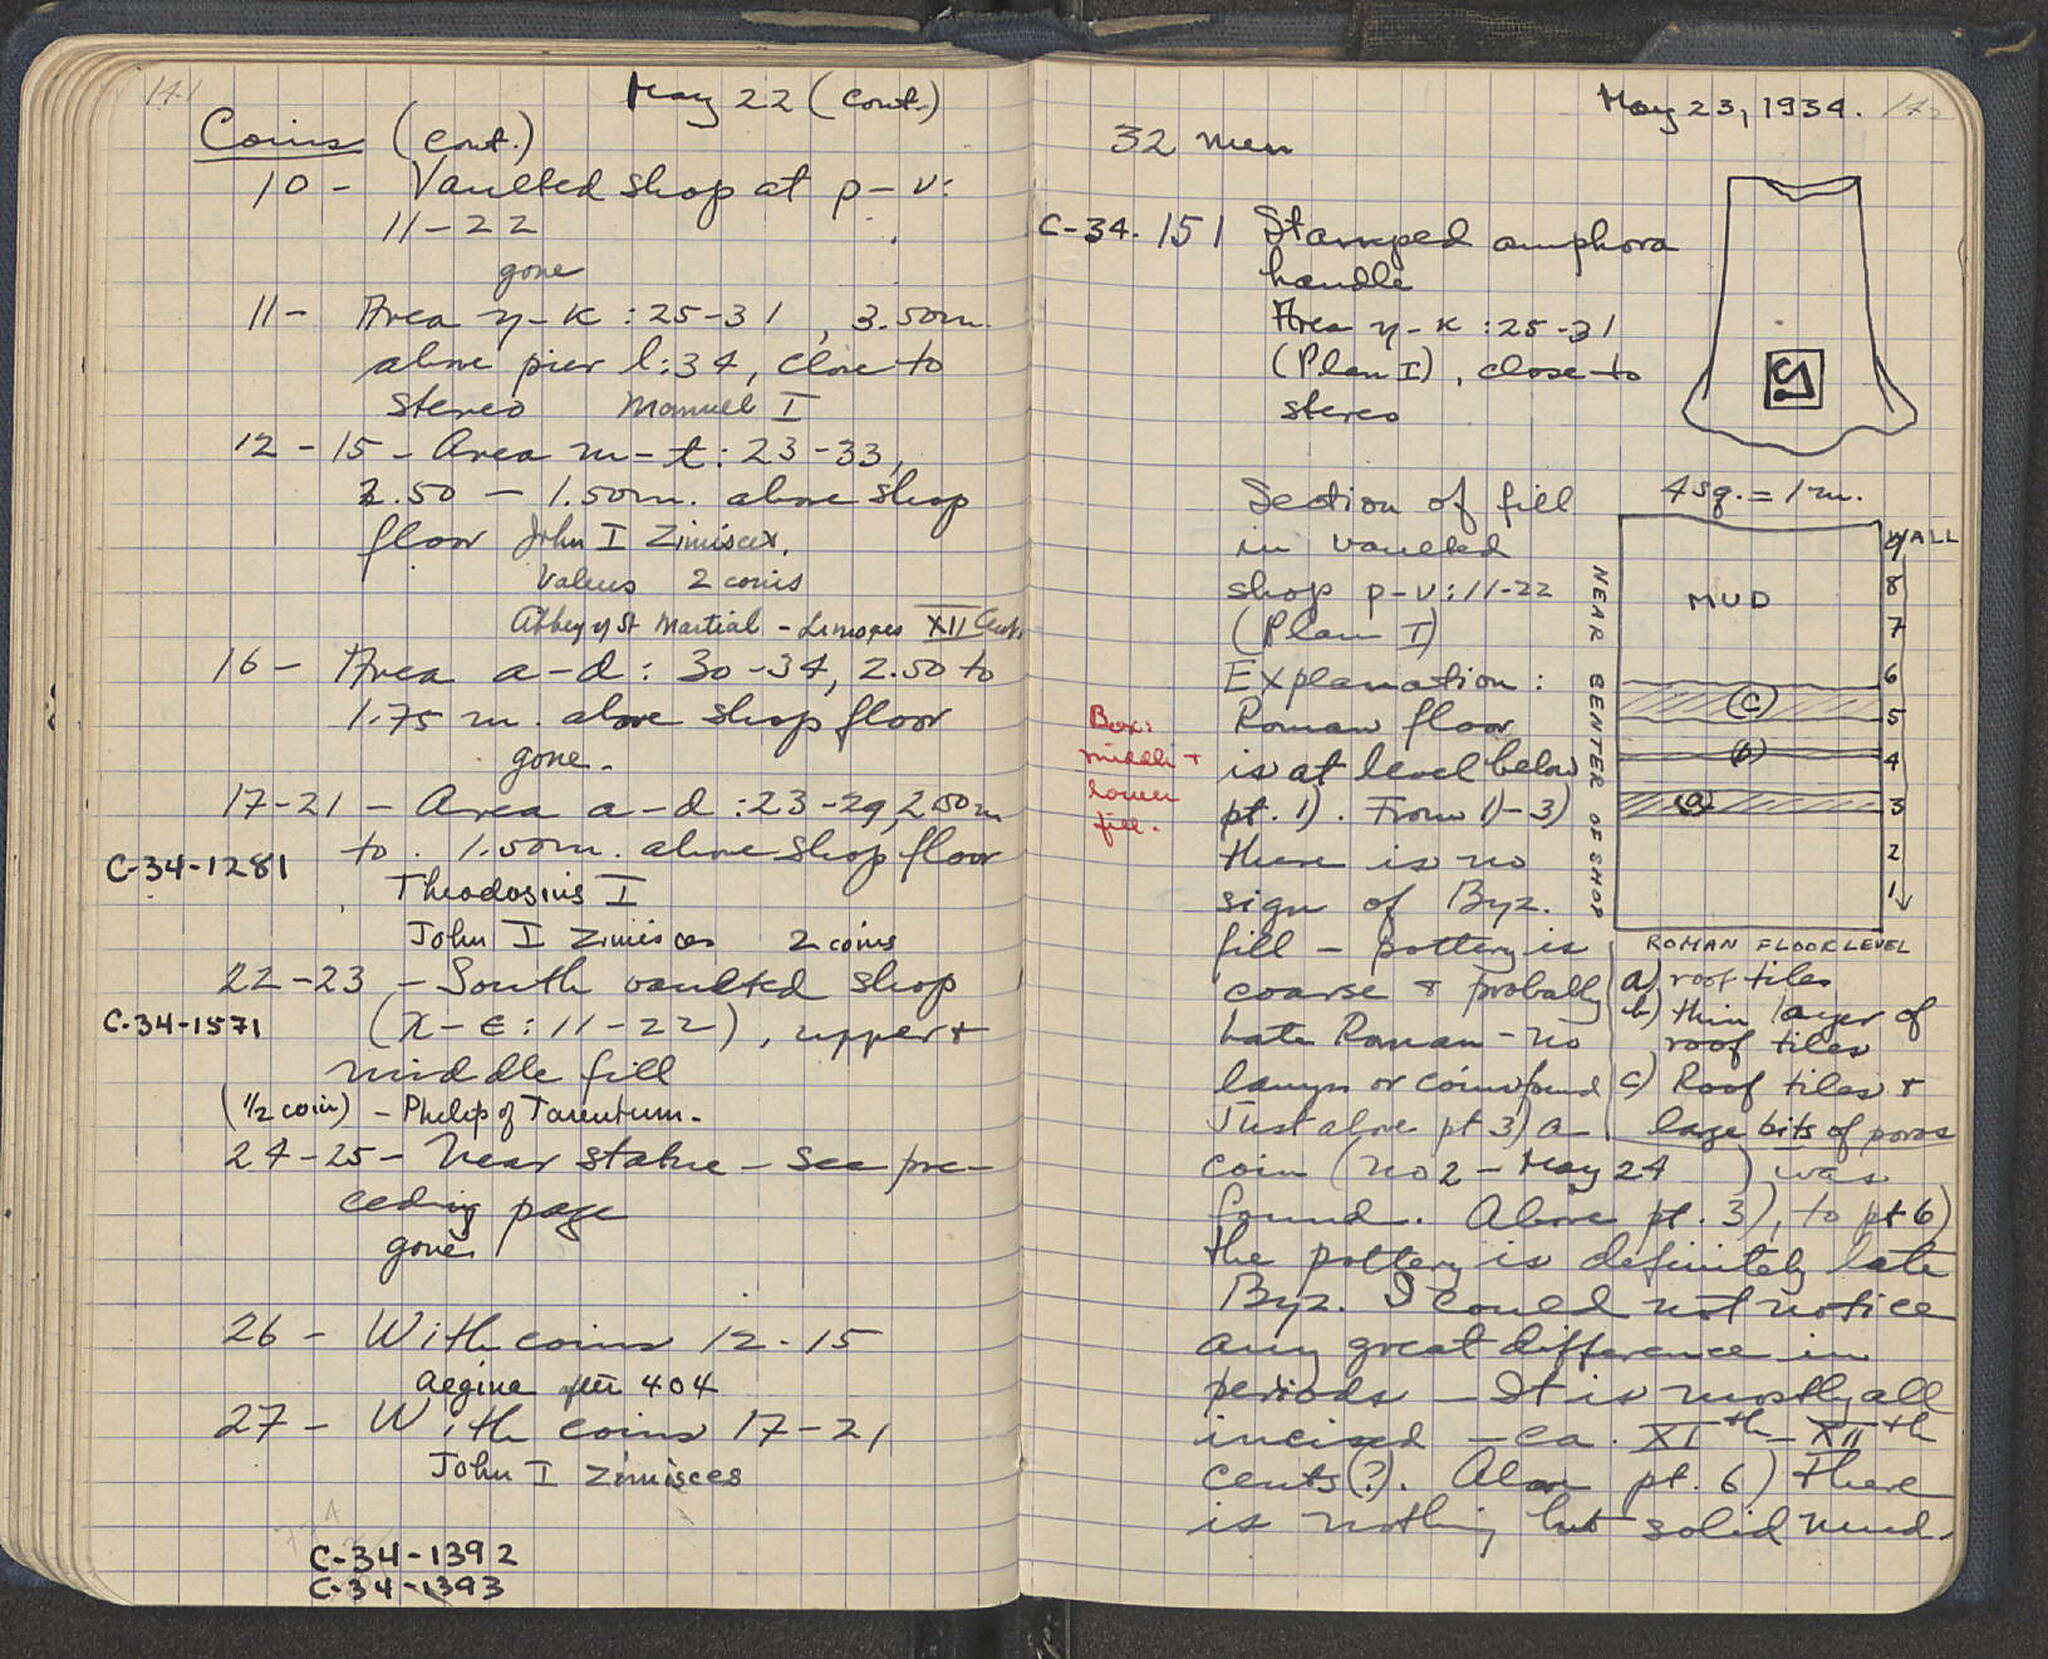 141
May 22 (cont.)
Coins (cont.)
10 - Vaulted shop at p - v:
11-22
gone
11- Area η-κ : 25-31, 3.50m.
above pier l:34, close to
stereo Manuel I
12 - 15 - Area m-t: 23-33,
2.50 - 1.50m. above shop
floor John I Zimisces.
Valens 2 coins
Abbey of St Martial - Limoges XII Cent.
16 - Area a-d: 30-34, 2.50 to
1.75 m. above shop floor
gone.
17-21 - Area a-d :23-29, 2.50m
to 1.50m. above shop floor
C-34-1281
Theodosius I
John I Zimisces 2 coins
22-23 - South vaulted shop
C-34-1571
(x-ε: 11-22), upper +
middle fill
(1/2 coin) - Philip of Tarentum.
24-25- Near statue - see pre-
ceding page
gone
26 - With coins 12-15
Aegina after 404
27 - With coins 17-21
John I Zimisces
C-34-1392
C-34-1393
May 23, 1934.
32 men
C-34-151 Stamped amphora
handle
Area η-κ : 25-31
(Plan I), close to
stereo
Section of fill
in vaulted
shop p-v: 11-22
(Plan I)
Explanation:
Roman floor
is at level below
pt. 1). From 1)-3)
there is no
sign of Byz.
fill - pottery is
coarse + probably
Late Roman - no
lamps or coins found
Just above pt 3) a
coin (no 2 - May 24 ) was
found. Above pt. 3), to pt 6)
the pottery is definitely late
Byz. I could not notice
any great difference in
periods - It is mostly all
incised - ca. XIth - XIIth
cents(?). Above pt. 6) there
is nothing but solid mud.
Box:
middle +
lower
fill.
4 sq. = 1 m.
WALL
9
8
MUD
7
6
(c)
5
(b)
4
(a)
3
2
1
NEAR CENTER OF SHOP
ROMAN FLOOR LEVEL
a) roof tiles
b) thin layer of
roof tiles
c) Roof tiles +
large bits of poros